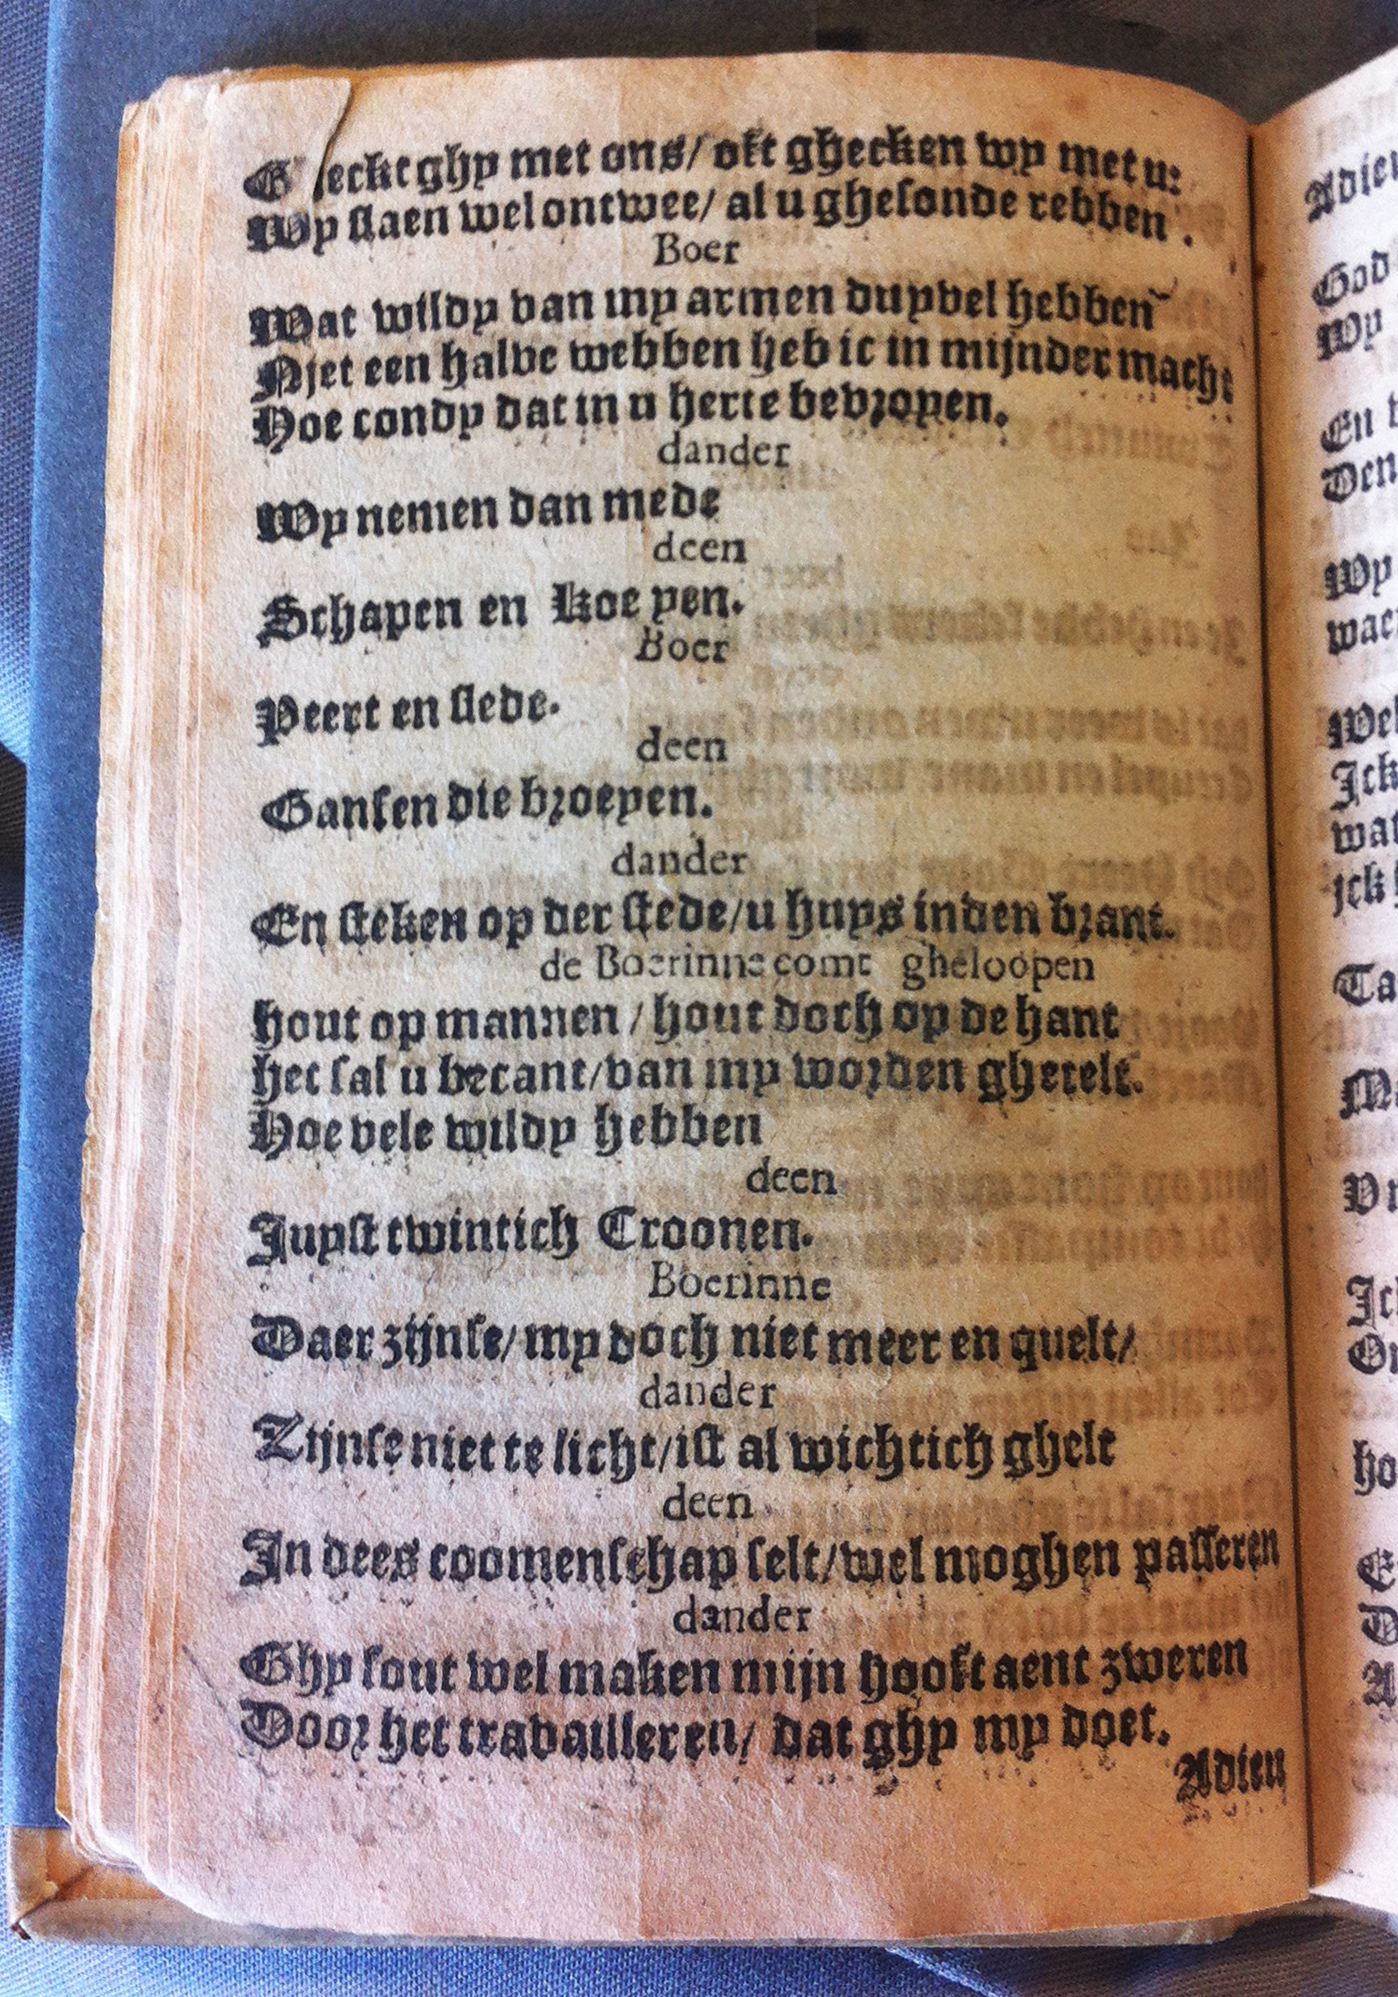 Gheckt ghy met ons/ oft ghecken wy met u:
Wy slaen wel ontwee/ al u ghesonde rebben.
Boer
Wat wildy van my armen duyvel hebben
Njet een halve webben heb ic in mijnder macht
Hoe condy dat in u herte bevroyen.
dander
Wy nemen dan mede
deen
Schapen en Koeyen.
Boer
Peert en slede.
deen
Gansen die broeyen.
dander
En steken op der stede/u huys inden brant.
de Boerinne comt gheloopen
hout op mannen / hout doch op de hant
het sal u becant/van my worden ghetelt.
Hoe vele wildy hebben
deen
Juyst twintich Croonen.
Boerinne
Daer zijnse/ my doch niet meer en quelt/
dander
Zijnse niet te licht/ist al wichtich ghelt
deen
In dees coomenschap selt/wel moghen passeren
dander
Ghy sout wel maken mijn hooft aent zweren
Door het travailleren/ dat ghy my doet.
Adieu